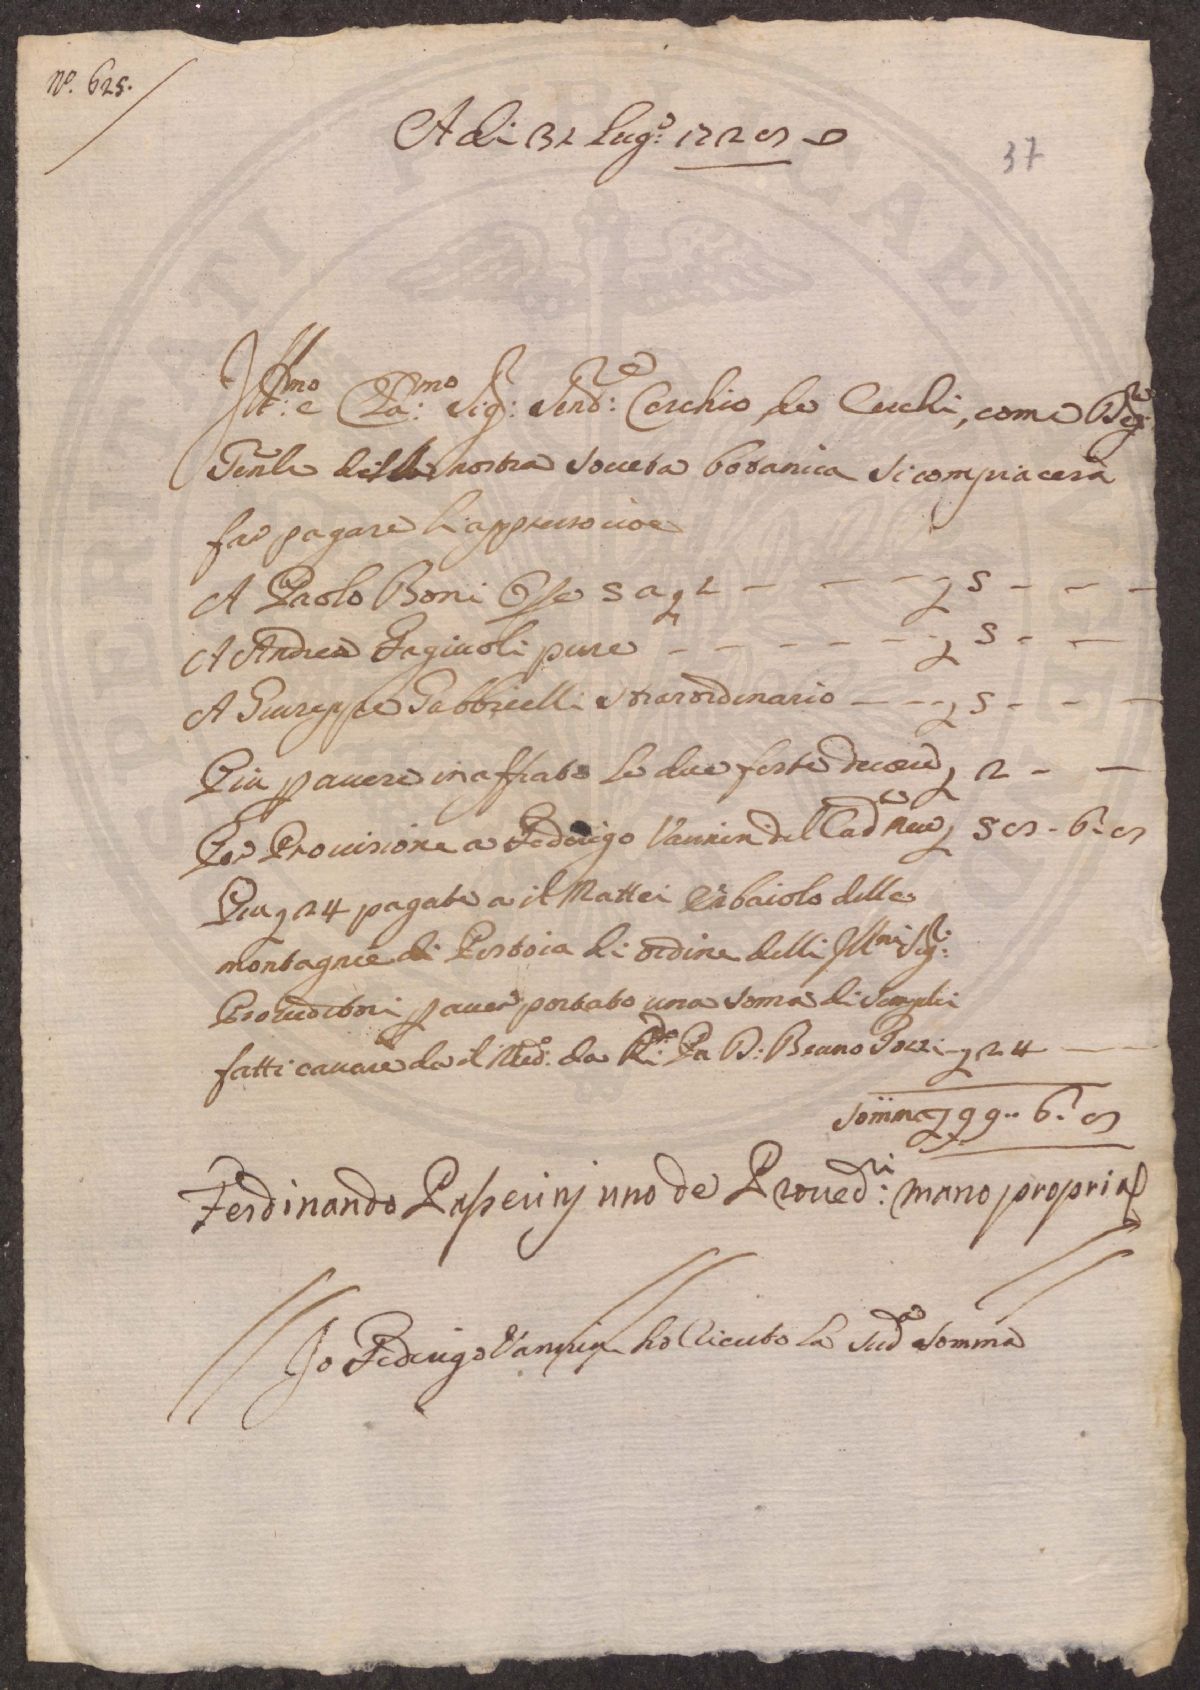 Nº. 625.
A di 31 Lug.º 1728
37
Ill:mo e Cla:mo Sig:r Send:re Cerchio de Cerchi, come Reg:te
Tente della nostra Società botanica si compiacerà
far pagare li appresso cioè
A Paolo Boni Op:e 5 a £ 2 £ 5
A Andrea Fagiuoli pure £ 5
A Giuseppe Gabbrielli straordinario £ 5
Più p avere inaffiato le due feste £ 2
Per Provisione a Federigo Vannini del £ 58 - 6. 8
Piu £ 24 pagate a il Mattei Erbaiolo delle
montagnie di Pistoia di ordine delli Ill:mi Sig:ri
Proveditori p aver portato una soma di Semplici
fatti cavare da il Med:º da R:do Pa D: Bruno Tozzi £ 24
Somma £ 99 .. 6. 8
Ferdinando Passerinj uno de Proued:ri mano propria
Io Federigo Vannini ho riceuto la Sud:a Somma